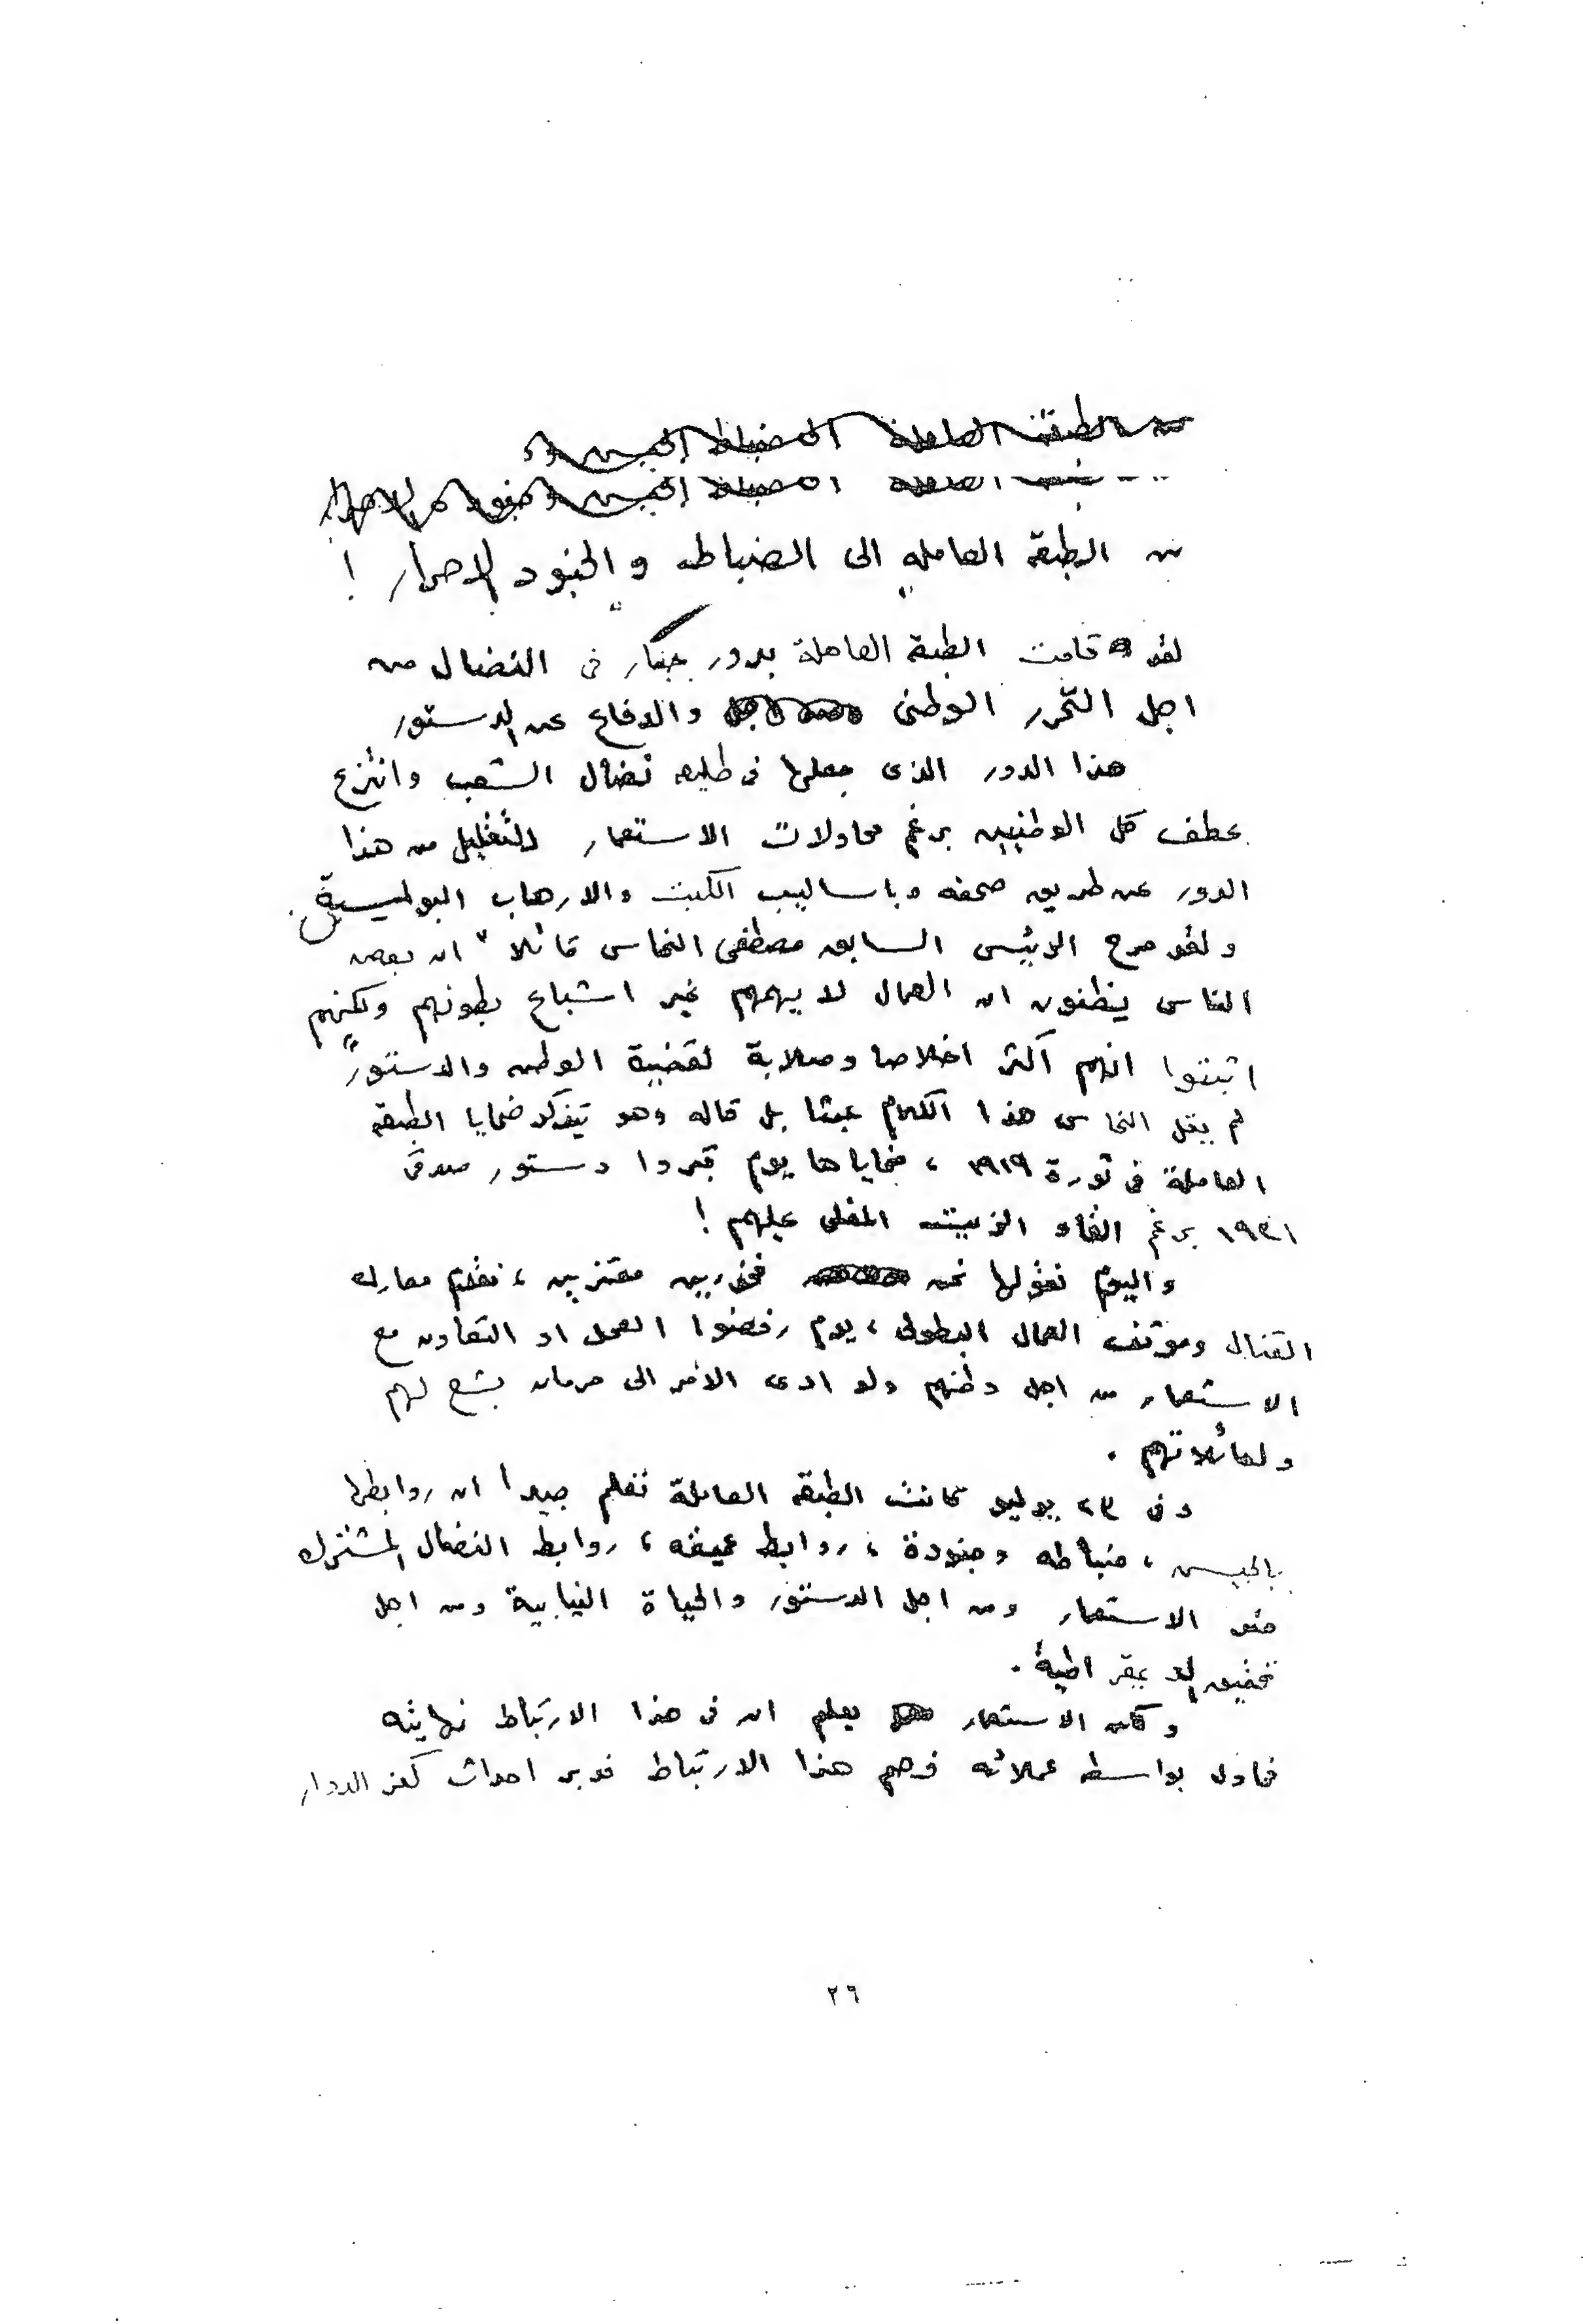 من الطبقة العاملة الى ضباط الجيش و
من الطبقة العامله الى الضباط والجنود الاحرار !
لقد قامت الطبقة العاملة بدور جبار فى النضال من
اجل التحرر الوطنى والدفاع عن الدستور
هذا الدور الذى جعلها فى طليعه نضال الشعب وانتزع
عطف كل الوطنيين برغم محاولات الاستعمار للتقليل من هذا
الدور عن طريق صحفه وباساليب الكبت والارهاب البوليسية
ولقد صرح الرئيس السابق مصطفى النحاس قائلا " ان بعض
الناس يظنون ان العمال لا يهمهم غير اشباع بطونهم ولكنهم
اثبتوا انهم اكثر اخلاصا وصلابة لقضية الوطن والدستور "
لم يقل النحاس هذا الكلام عبثا بل قاله وهو يتذكر ضحايا الطبقه
العاملة فى ثورة ١٩١٩ ، ضحاياها يوم قبروا دستور صدقى
١٩٣١ برغم القاء الزيت المغلى عليهم !
واليوم نقولها نحن فخورين معتزين ، نقدم معارك
القنال وموقف العمال البطولى ، يوم رفضوا العمل او التعاون مع
الاستعمار من اجل وطنهم ولو ادى الامر الى حرمان بشع لهم
ولعائلاتهم .
وفى ٢٣ يوليو كانت الطبقه العاملة تعلم جيدا ان روابطها
بالجيش ، ضباطه وجنوده ، روابط عميقه ، روابط النضال المشترك
ضد الاستعمار ومن اجل الدستور والحياة النيابية ومن اجل
تحقيق الديمقراطية .
وكان الاستعمار يعلم ان فى هذا الارتباط نهايته
فحاول بواسطه عملائه فصم هذا الارتباط فدبر احداث كفر الدوار
٢٦